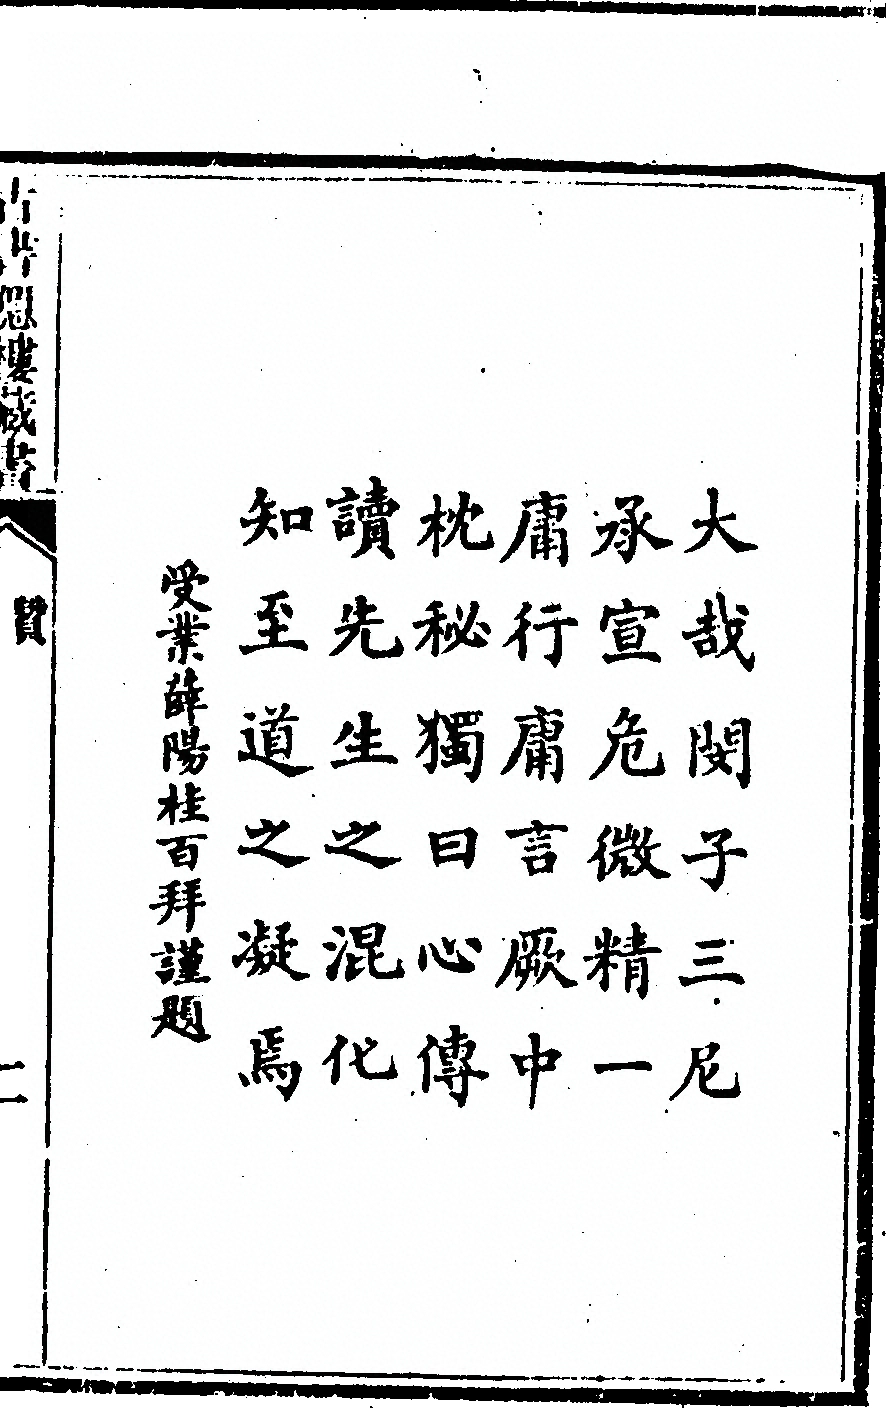 大哉閔子三尼
承宣危微精一
庸行庸言厥中
枕秘獨曰心傳
讀先生之混化
知至道之凝焉
受業薛陽桂百拜謹題
古書隱樓藏書
贊
二